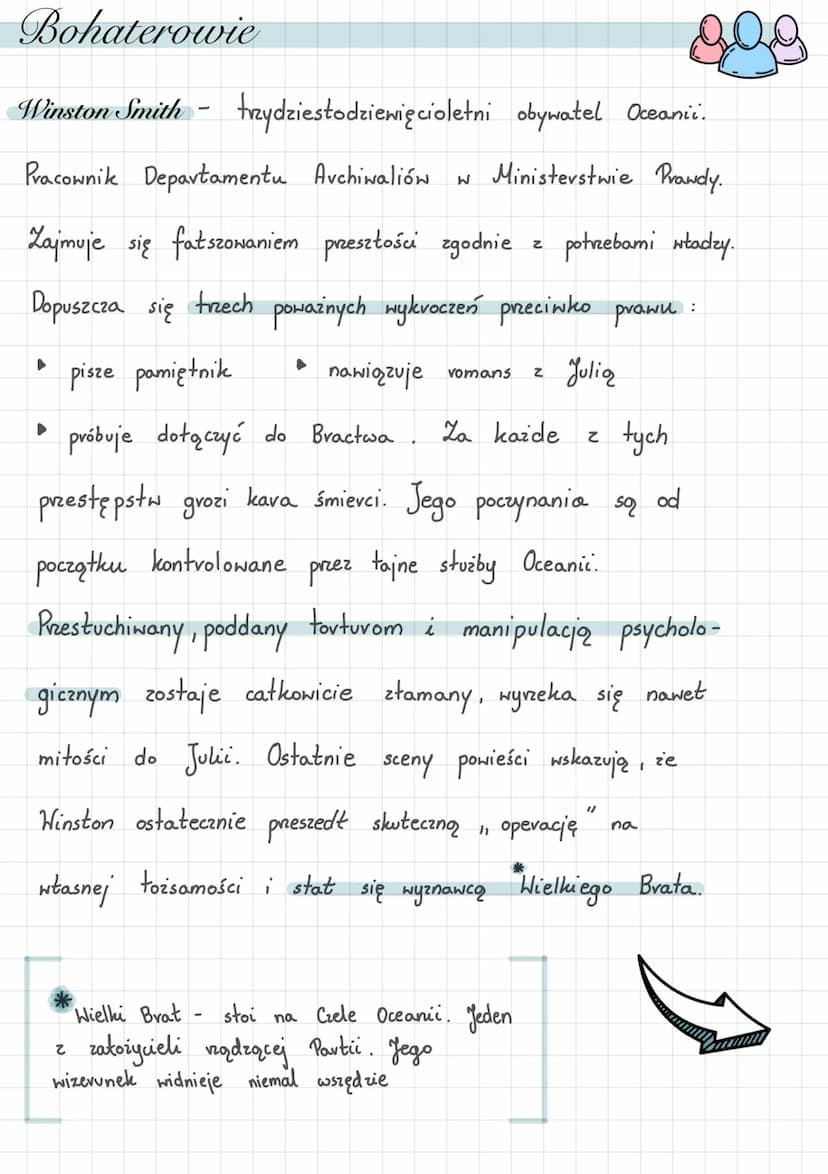 Bohaterowie
Winston Smith - trzydziestodziewięcioletni obywatel Oceanii.
Pracownik Departamentu Archiwaliów w Ministerstwie Prawdy.
Zajmuje się fałszowaniem przeszłości zgodnie z potrzebami władzy.
Dopuszcza się trzech poważnych wykroczeń przeciwko prawu :
▸ pisze pamiętnik ▸ nawiązuje romans z Julią
▸ próbuje dołączyć do Bractwa . Za każde z tych
przestępstw grozi kara śmierci. Jego poczynania są od
początku kontrolowane przez tajne służby Oceanii.
Przesłuchiwany, poddany torturom i manipulacją psycholo-
gicznym zostaje całkowicie złamany, wyrzeka się nawet
miłości do Julii. Ostatnie sceny powieści wskazują, że
Winston ostatecznie preszedł skuteczną „ operację" na
własnej tożsamości i stał się wyznawcą *Wielkiego Brata.
* Wielki Brat - stoi na Czele Oceanii. Jeden
z założycieli rządzącej Partii. Jego
wizerunek widnieje niemal wszędzie